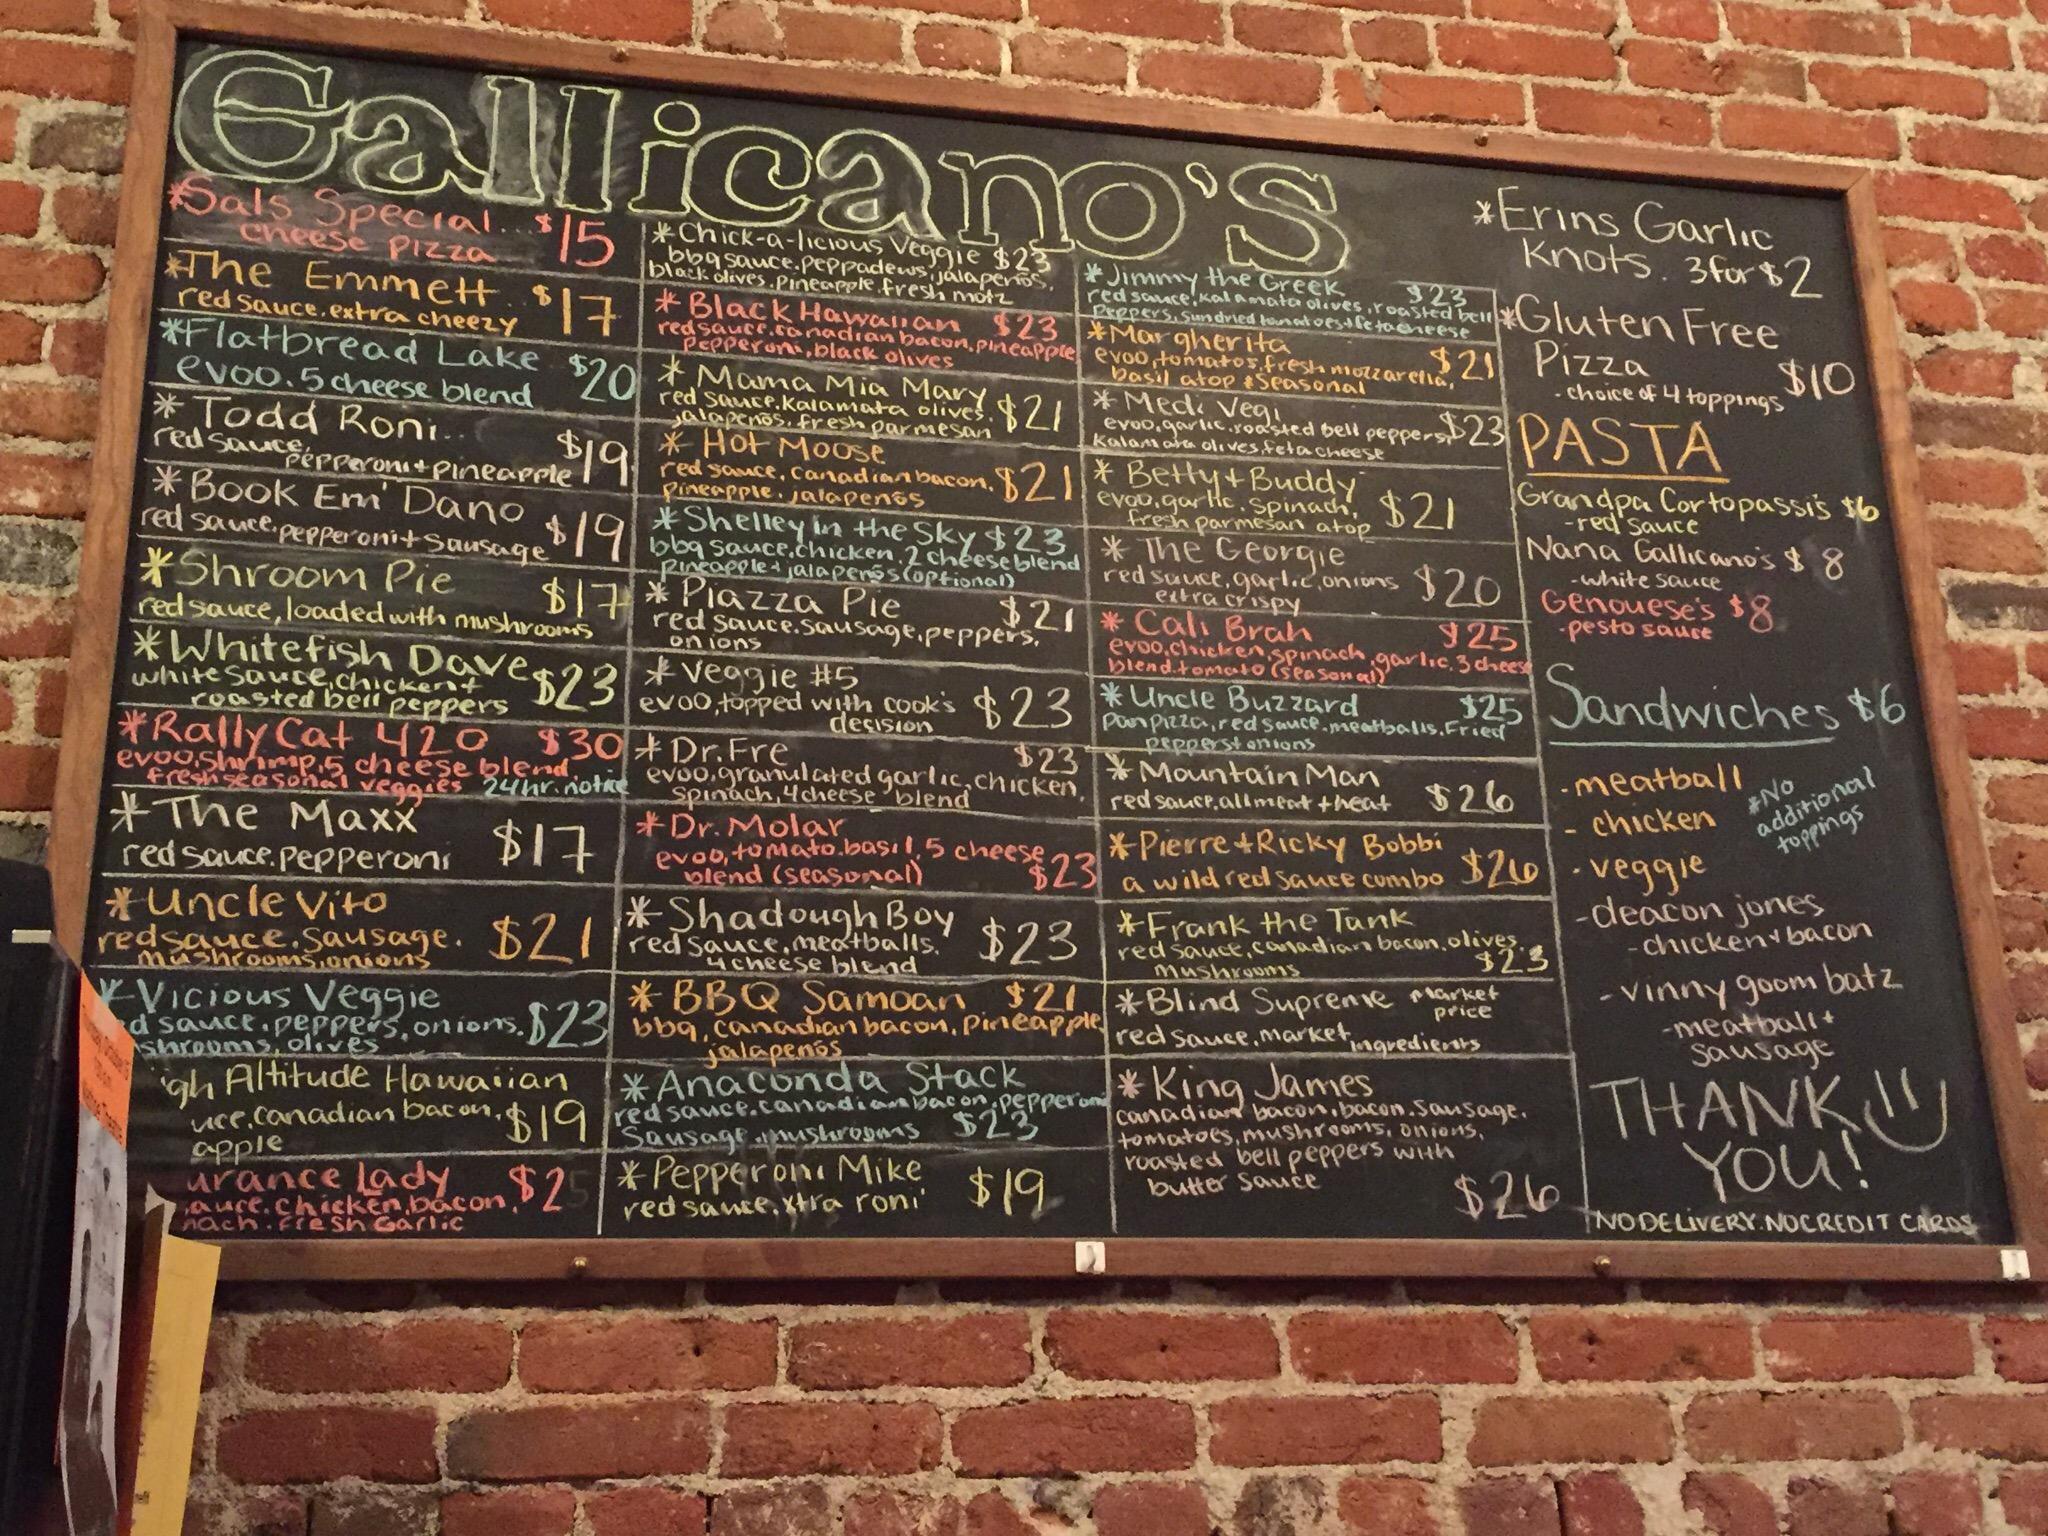 Gallicano's
*Sals Special... $15
cheese pizza
*The Emmett.. $17
red sauce, extra cheezy
*Flatbread Lake $20
evoo. 5 cheese blend
* Todd Roni..
red sauce, $19
pepperoni + pineapple
* Book Em' Dano
red sauce, pepperoni + sausage $19
*Shroom Pie $17
red sauce, loaded with mushrooms
*Whitefish Dave $23
white sauce, chicken +
roasted bell peppers
*Rally Cat 420 $30
evoo, shrimp, 5 cheese blend,
fresh seasonal veggies 24hr. notice
*The Maxx $17
red sauce. pepperoni
*Uncle Vito
red sauce. sausage. $21
mushrooms, onions
*Vicious Veggie
d sauce, peppers, onions. $23
shrooms, olives
igh Altitude Hawaiian
uce, canadian bacon, $19
apple
urance Lady $25
auce, chicken, bacon,
nach. Fresh Garlic
* Chick-a-licious Veggie $23
bbq sauce. peppadews, jalapeños,
black olives, pineapple, fresh motz
* Black Hawaiian $23
red sauce, canadian bacon, pineapple
pepperoni, black olives
* Mama Mia Mary
red sauce, kalamata olives, $21
jalapeños, fresh parmesan
* Hot Moose
red sauce, canadian bacon, $21
pineapple, jalapeños
*Shelley in the Sky $23
bbq sauce, chicken, 2 cheese blend
pineapple + jalapeños (optional)
* Piazza Pie $21
red sauce. sausage, peppers,
onions
* Veggie #5
evoo, topped with cook's $23
decision
*Dr. Fre $23
evoo, granulated garlic, chicken,
spinach, 4 cheese blend
*Dr. Molar
evoo, tomato. basil, 5 cheese
blend (seasonal) $23
*Shadough Boy
red sauce, meatballs. $23
4 cheese blend
* BBQ Samoan $21
bbq, canadian bacon, pineapple,
jalapeños
*Anaconda Stack
red sauce. canadian bacon, pepperoni
sausage, mushrooms $23
*Pepperoni Mike
red sauce, xtra roni $19
* Jimmy the Greek $23
red sauce, kalamata olives, roasted bell
peppers, sundried tomatoes + feta cheese
*Margherita $21
evoo, tomatos, fresh mozzarella,
basil atop *seasonal
* Medi Vegi
evoo, garlic, roasted bell peppers, $23
kalamata olives, feta cheese
* Betty + Buddy
evoo, garlic, spinach, $21
fresh parmesan atop
* The Georgie
red sauce, garlic, onions $20
extra crispy
* Cali Brah $25
evoo, chicken, spinach, garlic, 3 cheese
blend. tomato (seasonal)
*Uncle Buzzard $25
pan pizza, red sauce. meatballs, fried
peppers + onions
*Mountain Man
red sauce, all meat + heat $26
*Pierre + Ricky Bobbi
a wild red sauce combo $26
*Frank the Tank
red sauce, canadian bacon, olives,
mushrooms $23
*Blind Supreme market
price
red sauce, market ingredients
* King James
canadian bacon, bacon, sausage,
tomatoes, mushrooms, onions,
roasted bell peppers with
butter sauce
$26
*Erins Garlic
Knots. 3 for $2
*Gluten Free
Pizza $10
- choice of 4 toppings
PASTA
Grandpa Cortopassi's $6
-red sauce
Nana Gallicano's $8
-white sauce
Genovese's $8
-pesto sauce
Sandwiches $6
-meatball
- chicken
- veggie
*No
additional
toppings
-deacon jones
-chicken + bacon
-vinny goom batz
-meatball +
sausage
THANK
YOU!
NO DELIVERY. NO CREDIT CARDS